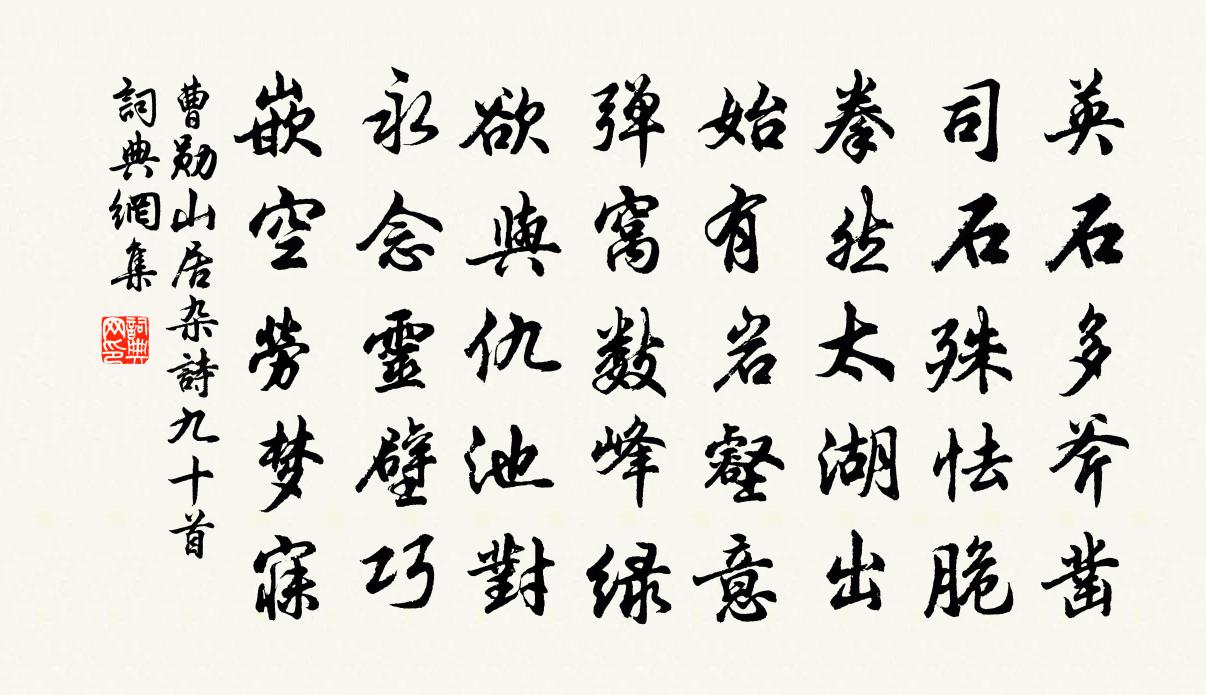 英石多斧凿
司石殊怯脆
拳然太湖出
始有岩壑意
弹窝数峰绿
欲與仇池對
永念靈壁巧
嵌空劳梦寐
曹勋山居杂詩九十首
詞典網集
詞典网印